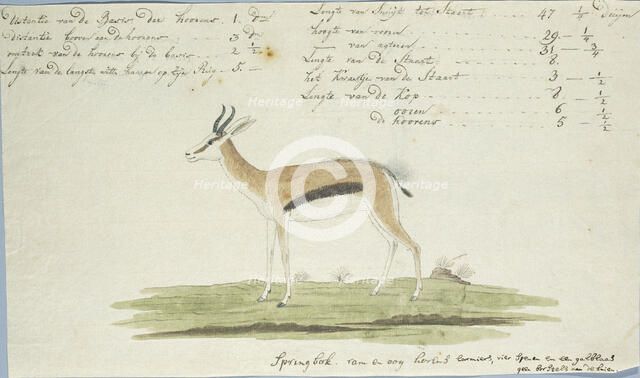 Distantie van de Basis der hoorens 1. Dm
Distantie boven aan de hoorens 3 Dm
omtrek van de hoorens bij de basis 2 1/2
Lengte van de langste witte haair op zijn Rug 5. —
Lengte van Snuijt tot Staart 47 1/2 Duijm
hoogte van vooren 29 — 1/4
— van agteren 31 — 3/4
Lengte van de Staart 8.
het Kwastje van de Staart 3 — 1/2
Lengte van de Kop 8 — 1/2
ooren 6 1/2
de hoorens 5 — 1/2
Heritage
Heritage
Heritage
Heritage
Heritage
Heritage
Springbok. ram en ooy horens larmiers, vier Spenen en een galblaas
geen borstels aan de knien